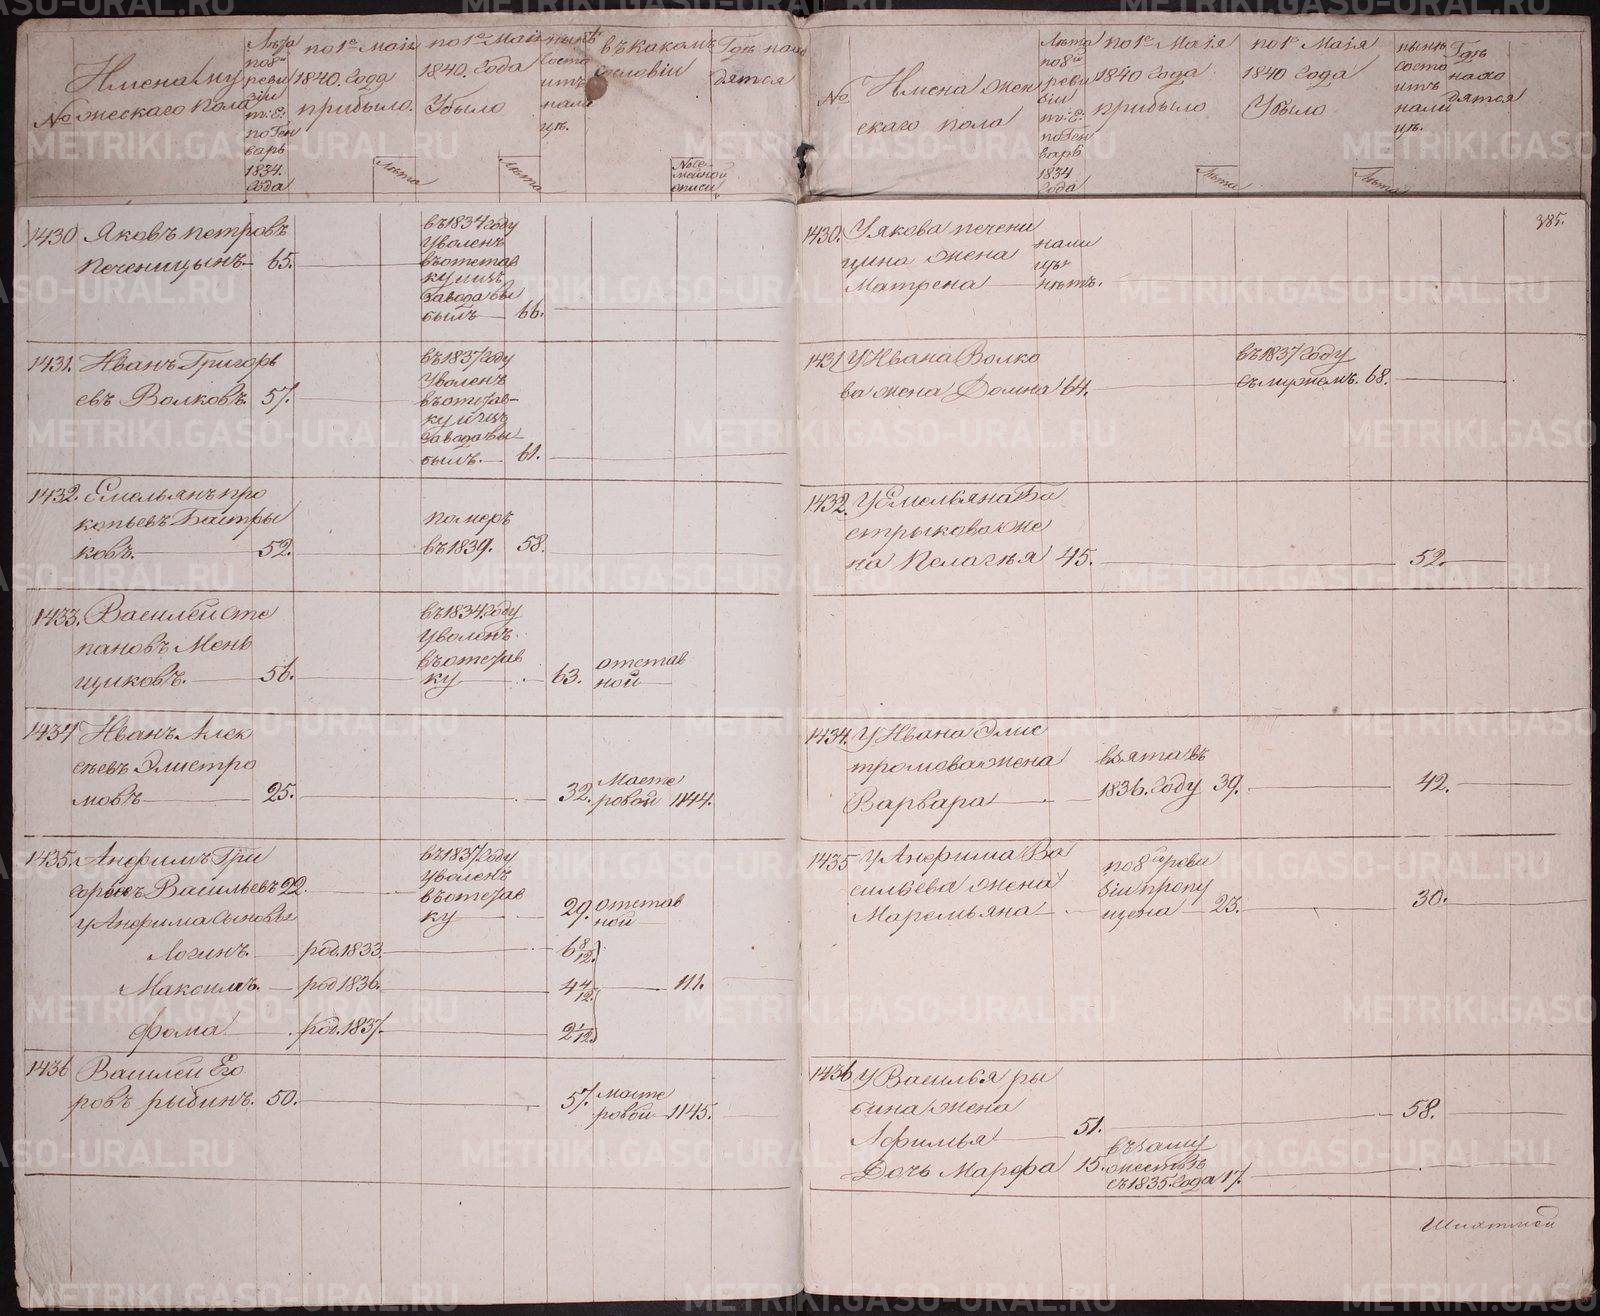 № Имена му
жескаго пола
Лѣта
по 8й
реви
зіи
т: е:
по Ген
варь
1834.
года
по 1е Маія
1840. года
прибыло.
Лѣта
по 1е Маія
1840. года
Убыло
Лѣта
нынѣ
состо
итъ
нали
цѣ.
въ какомъ
сословіи
№ се
мейной
описи
Гдѣ нахо
дятся
1430 Яковъ Петровъ
Печеницынъ 65.
въ 1834 году
Уволенъ
въ отстав
ку и изъ
завода вы
былъ 66.
1431. Иванъ Григорь
евъ Волковъ. 57.
въ 1837 году
Уволенъ
въ отстав-
ку и изъ
завода вы
былъ. 61.
1432. Емельянъ Про
копьевъ Бастры
ковъ. 52.
померъ
въ 1839. 58.
1433. Василей Сте
пановъ Мень
щиковъ. 56.
въ 1834 году
Уволенъ
въ отстав
ку 63. отстав
ной
1434 Иванъ Алек
сѣевъ Элистро
мовъ 25. 32. Масте
ровой 1144.
1435. Анфимъ Гри
горьевъ Васильевъ 22.
въ 1837 году
Уволенъ
въ отстав
ку 29. отстав
ной
у Анфима сыновья
Логинъ. род. 1833. 6 8/12.
Максимъ. род 1836. 4 4/12. 111.
Фома род. 1837. 2 1/12.
1436 Василей Его
ровъ Рыбинъ. 50. 57. масте
ровой 1145.
№ Имена жен
скаго пола
Лѣта
по 8й
реви
зіи
т: е:
по Ген
варь
1834
года
по 1е Маія
1840 года
прибыло
Лѣта
по 1е Маія
1840 года
Убыло
Лѣта
нынѣ
состо
итъ
нали
цѣ.
Гдѣ
нахо
дятся
385.
1430. У Якова Печени
цина жена
Матрена
нали
цѣ
нѣтъ.
1431 У Ивана Волко
ва жена Домна 64.
въ 1837 году
съ мужемъ. 68.
1432. У Емельяна Ба
стрыкова же
на Пелагѣя 45. 52.
1434. У Ивана Элис
тромова жена
Варвара
взята въ
1836. году 39. 42.
1435 У Анфима Ва
сильева жена
Маремьяна
по 8й реви
зіи пропу
щена 23. 30.
1436 У Василья Ры
бина жена
Афимья 51. 58.
Дочь Марфа 15.
въ заму
жествѣ
съ 1835. года 17.
METRIKI.GASO-URAL.RU